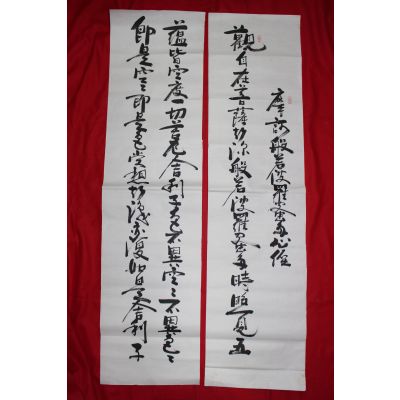 摩訶般若波羅蜜多心經
觀自在菩薩行深般若波羅蜜多時照見五
蘊皆空度一切苦厄舍利子色不異空〻不異色〻
卽是空〻卽是色受想行識亦復如是舍利子